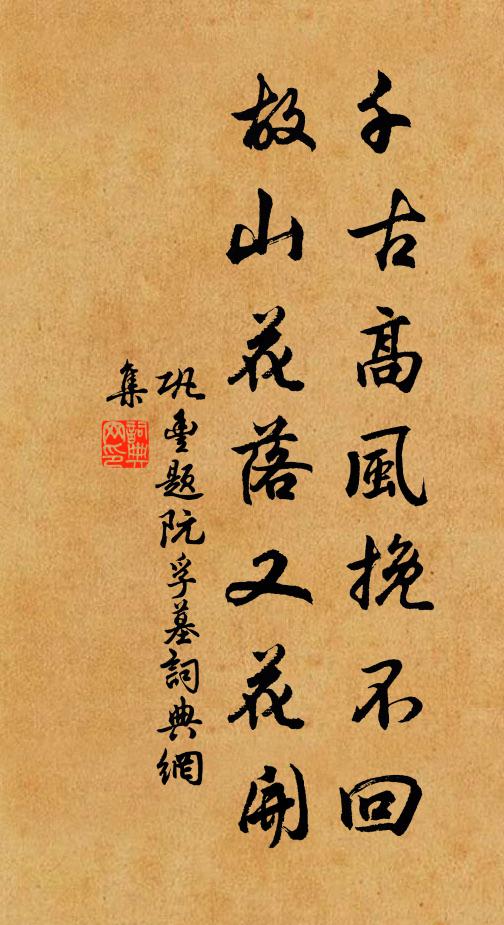 千古高風挽不回
故山花落又花開
巩豐題阮孚墓詞典網
集
詞典
网印